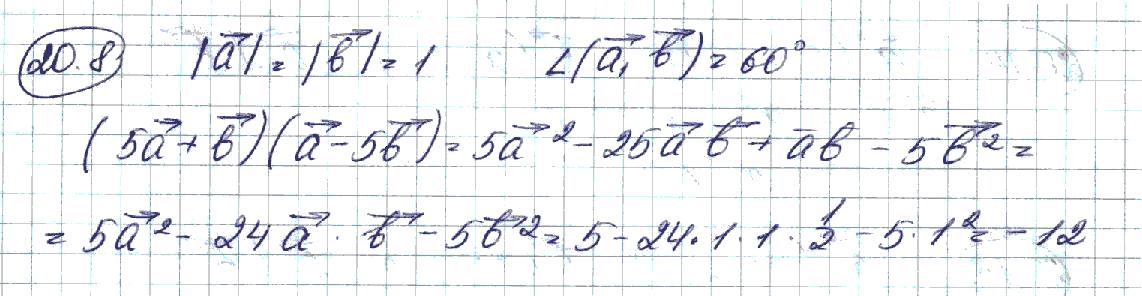 20.8 |a⃗| = |b⃗| = 1 ∠(a⃗, b⃗) = 60°
(5a⃗ + b⃗)(a⃗ - 5b⃗) = 5a⃗² - 25a⃗ b⃗ + a̅b - 5b⃗² =
= 5a⃗² - 24a⃗ · b⃗ - 5b⃗² = 5 - 24 · 1 · 1 · 1/2 - 5 · 1² = -12